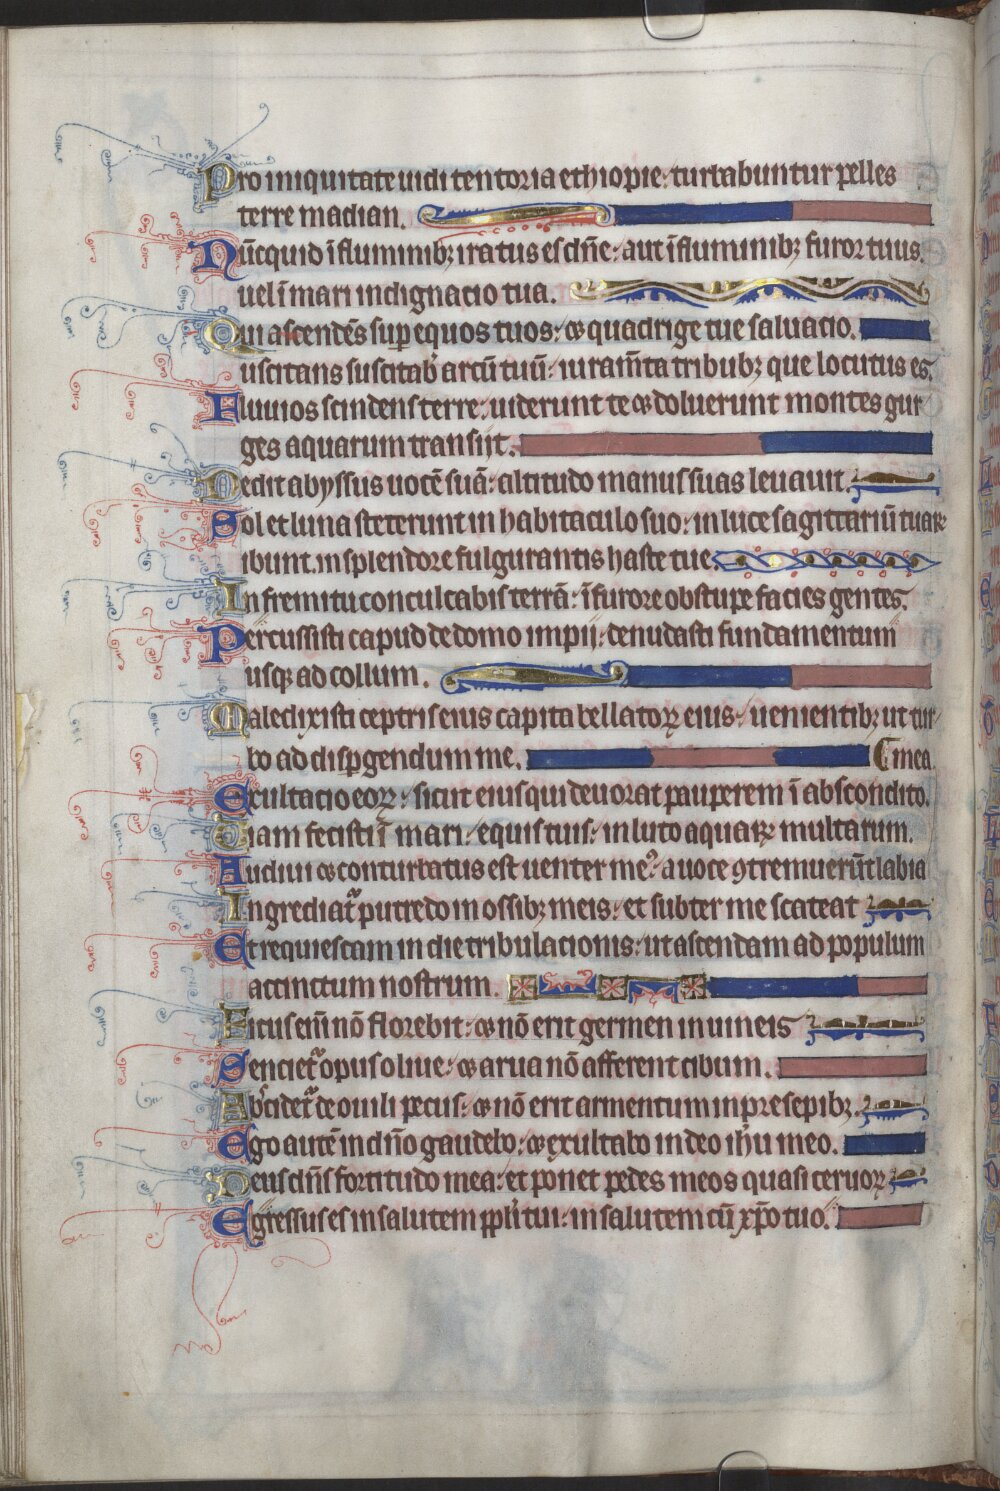 Pro iniquitate uidi tentoria ethiopie: turbabuntur pelles
terre madian.
Nūcquid ī fluminibꝫ iratus es dn̄e: aut ī fluminibꝫ furor tuus.
uel ī mari indignacio tua.
Qui ascendēs suꝑ equos tuos: ⁊ quadrige tue saluatio.
uscitans suscitab̄ arcū tuū: iuramn̄ta tribubꝫ que locutus es.
Fluuios scindens terre: uiderunt te ⁊ doluerunt montes gur
ges aquarum transijt.
Dedit abyssus uocē suā: altitudo manus suas leuauit.
Sol et luna steterunt in habitaculo suo: in luce sagittariū tuaꝝ
ibunt. in splendore fulgurantis haste tue.
In fremitu conculcabis terrā: ī furore obstupefacies gentes.
Percussisti capud de domo impij: denudasti fundamentum
usqꝫ ad collum.
Maledixisti ceptris eius capita bellatoꝝ eius: uenientibꝫ ut tur
bo ad disꝑgendum me. mea.
Exultacio eoꝝ: sicut eius qui deuorat pauperem ī abscondito.
Uiam fecisti ī mari equis tuis: in luto aquaꝝ multarum.
Audiui ⁊ conturbatus est uenter meꝰ: a uoce ꝯtremuerūt labia
Ingrediat᷑ putredo in ossibꝫ meis: et subter me scateat
Et requiescam in die tribulacionis: ut ascendam ad populum
accinctum nostrum.
Ficus enī nō florebit: ⁊ nō erit germen in uineis
Senciet᷑ opus oliue: ⁊ arua nō afferent cibum.
Abscidet᷑ de ouili pecus: ⁊ nō erit armentum in presepibꝫ.
Ego autē in dn̄o gaudebo: ⁊ exultabo in deo ih̄u meo.
Deus dn̄s fortitudo mea: et ponet pedes meos quasi ceruoꝝ
Egressus es in salutem ppl̄i tui: in salutem cū xp̄o tuo.